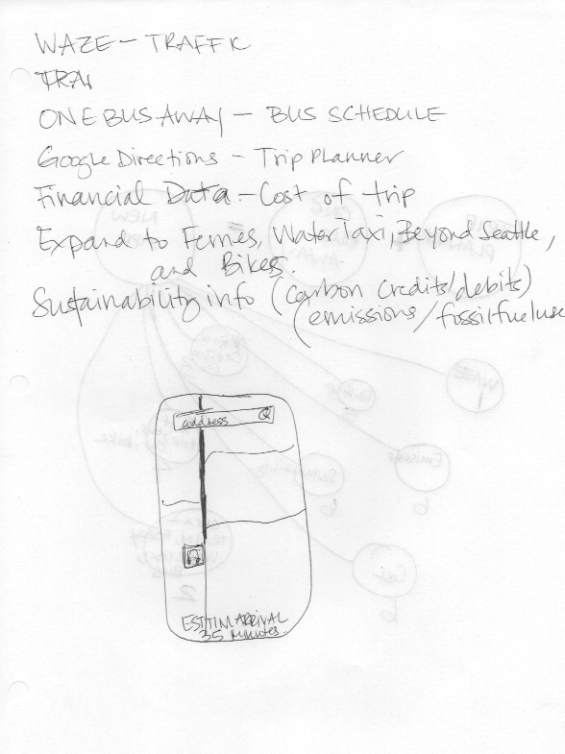 WAZE - TRAFFIC
TRA
ONE BUS AWAY - BUS SCHEDULE
Google Directions - Trip Planner
Financial Data - Cost of trip
Expand to Ferries, Water Taxi, Beyond Seattle,
and Bikes.
Sustainability info (carbon credits/debits)
(emissions/fossil fuel use
address
EST TIM ARRIVAL
35 minutes.